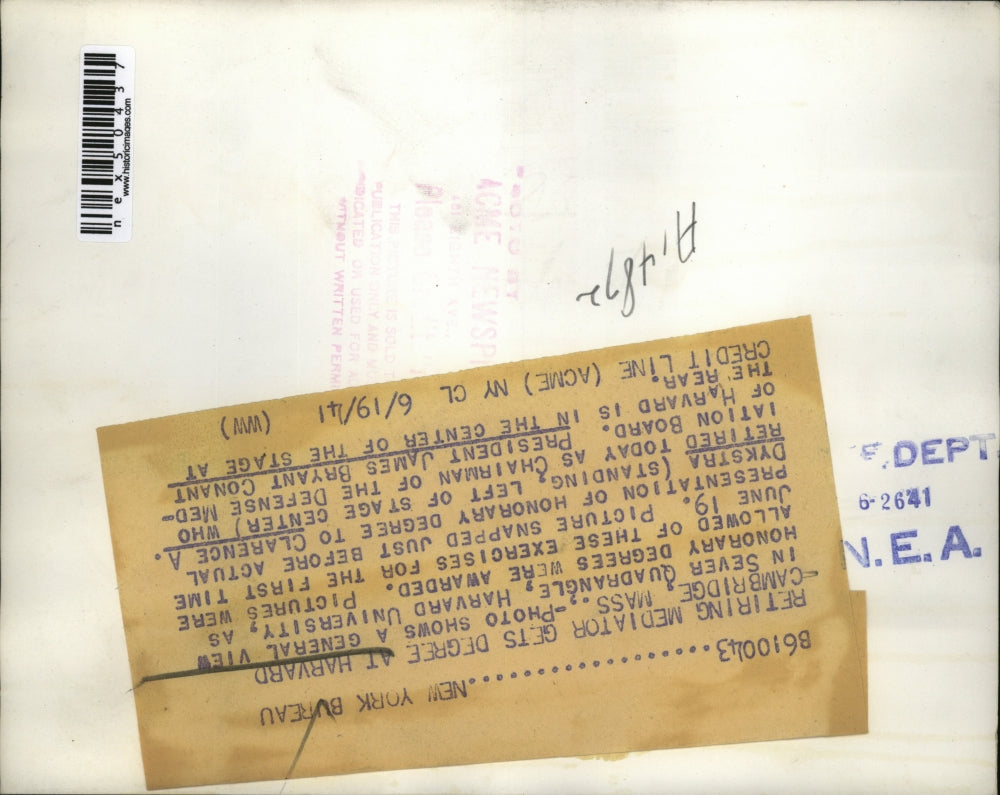 B610043.....................NEW YORK BUREAU
RETIRING MEDIATOR GETS DEGREE AT HARVARD
CAMBRIDGE, MASS.--PHOTO SHOWS A GENERAL VIEW
IN SEVER QUADRANGLE, HARVARD UNIVERSITY, AS
HONORARY DEGREES WERE AWARDED. PICTURES WERE
ALLOWED OF THESE EXERCISES FOR THE FIRST TIME
JUNE 19. PICTURE SNAPPED JUST BEFORE ACTUAL
PRESENTATION OF HONORARY DEGREE TO CLARENCE A.
DYKSTRA (STANDING, LEFT OF STAGE CENTER) WHO
RETIRED TODAY AS CHAIRMAN OF THE DEFENSE MED-
IATION BOARD. PRESIDENT JAMES BRYANT CONANT
OF HARVARD IS IN THE CENTER OF THE STAGE AT
THE REAR.
CREDIT LINE (ACME) NY CL 6/19/41 (WW)
DEPT
6-26 41
N.E.A.
ACME
THIS PICTURE IS SOLD
PUBLICATION ONLY AND
OR USED FOR
WITHOUT WRITTEN
nex50437
www.historicimages.com